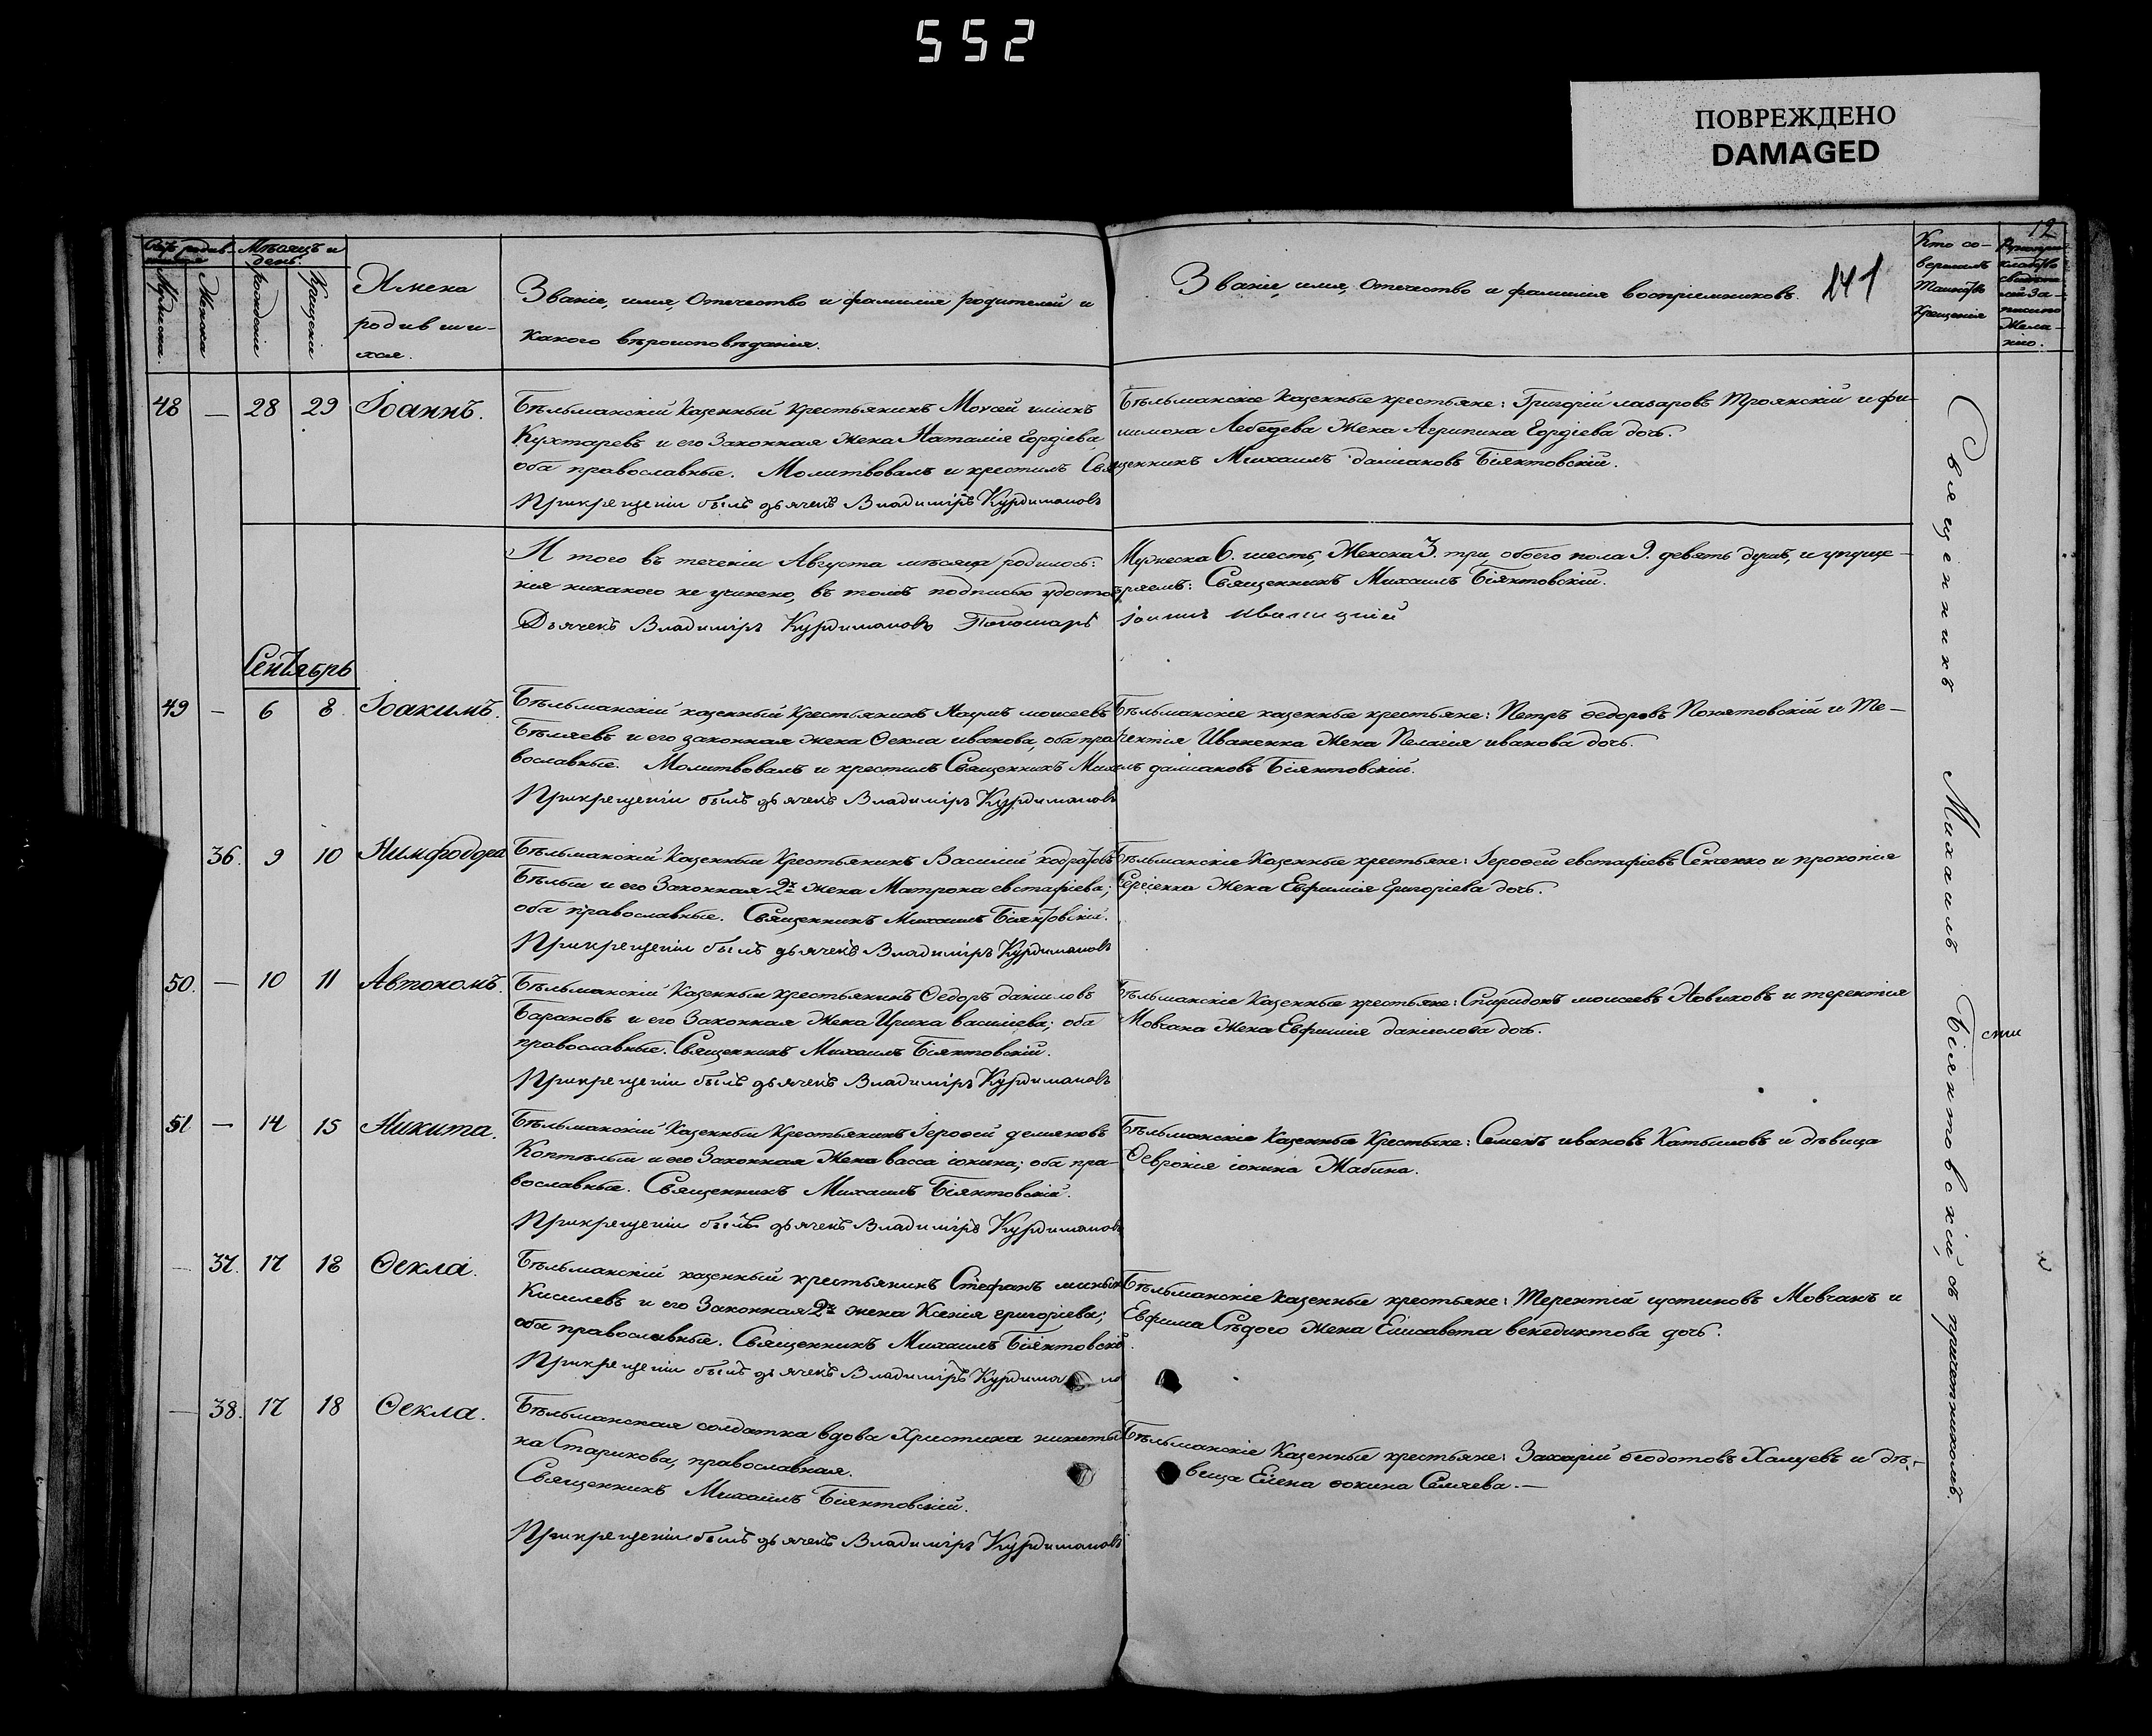 552
ПОВРЕЖДЕНО
DAMAGED
12
Мѣсяцъ и
день.
Мужеска.
Женска
рожденіе
Крещеніе
Имена
родивши-
хся.
Званіе, имя, отечество и фамилія родителей и
какого вѣроисповѣданія.
Званіе, имя, отечество и фамилія воспріемниковъ.
141
Кто со-
вершилъ
таинство
крещенія
48 — 28 29 Іоаннъ.
Бѣльманскій казенный крестьянинъ Моисей
Кухтаревъ и его законная жена Наталія Гордіева
оба православные. Молитвовалъ и крестилъ Священникъ Михаилъ даміановъ Біянтовскій.
При крещеніи былъ дьячекъ Владиміръ Курдимановъ
Бѣльманскіе казенные крестьяне: Григорій лазаровъ Троянскій и фи-
лимона Лебедева жена Агрипина Гордіева дочь.
И того въ теченіи Августа мѣсяца родилось: Мужеска 6. шесть, Женска 3. три, обоего пола 9. девять душъ, и упуще-
нія никакого не учинено, въ томъ подписью удостовѣряемъ: Священникъ Михаилъ Біянтовскій.
Дьячекъ Владиміръ Курдимановъ Пономарь
Сентябрь
49 — 6 8 Іоакимъ.
Бѣльманскій казенный крестьянинъ Наумъ моисеевъ
Бѣляевъ и его законная жена Ѳекла иванова, оба пра-
вославные. Молитвовалъ и крестилъ Священникъ Михаилъ даміановъ Біянтовскій.
При крещеніи былъ дьячекъ Владиміръ Курдимановъ
Бѣльманскіе казенные крестьяне: Петръ ѳедоровъ Понятовскій и Те-
рентія Иваненка жена Пелагія иванова дочь.
36. 9 10 Нимфодора
Бѣльманскій казенный крестьянинъ Василій кодратовъ
Бѣлый и его законная 2я жена Матрона евстафіева;
оба православные. Священникъ Михаилъ Біянтовскій.
При крещеніи былъ дьячекъ Владиміръ Курдимановъ
Бѣльманскіе казенные крестьяне: Іероѳей евстафіевъ Сенченко и прокопія
Сергіенка жена Евфимія григоріева дочь.
50. — 10 11 Автономъ.
Бѣльманскій казенный крестьянинъ Ѳедоръ даніиловъ
Барановъ и его законная жена Ирина василіева; оба
православные. Священникъ Михаилъ Біянтовскій.
При крещеніи былъ дьячекъ Владиміръ Курдимановъ
Бѣльманскіе казенные крестьяне: Спиридонъ моисеевъ Новиковъ и терентія
Мовчана жена Евфимія даніилова дочь.
51 — 14 15 Никита.
Бѣльманскій казенный крестьянинъ Іероѳей деміяновъ
Коптѣлый и его законная жена васса іонина; оба пра-
вославные. Священникъ Михаилъ Біянтовскій.
При крещеніи былъ дьячекъ Владиміръ Курдимановъ
Бѣльманскіе казенные крестьяне: Семенъ ивановъ Катыловъ и дѣвица
Ѳевронія іонина Жабина.
— 37. 17 18 Ѳекла.
Бѣльманскій казенный крестьянинъ Стефанъ
Киселевъ и его законная 2я жена Ксенія григоріева;
оба православные. Священникъ Михаилъ Біянтовскій.
При крещеніи былъ дьячекъ Владиміръ
Бѣльманскіе казенные крестьяне: Терентій устиновъ Мовчанъ и
Евфима Сѣдого жена Елисавета венедиктова дочь.
— 38. 17 18 Ѳекла.
Бѣльманская солдатка вдова Христина никити-
на Старикова, православная.
Священникъ Михаилъ Біянтовскій.
При крещеніи былъ дьячекъ Владиміръ Курдимановъ
Бѣльманскіе казенные крестьяне: Захарій ѳеодотовъ Халуевъ и дѣ-
вица Елена ѳокина Селяева. —
Священникъ Михаилъ Біянтовскій, съ причетникомъ.